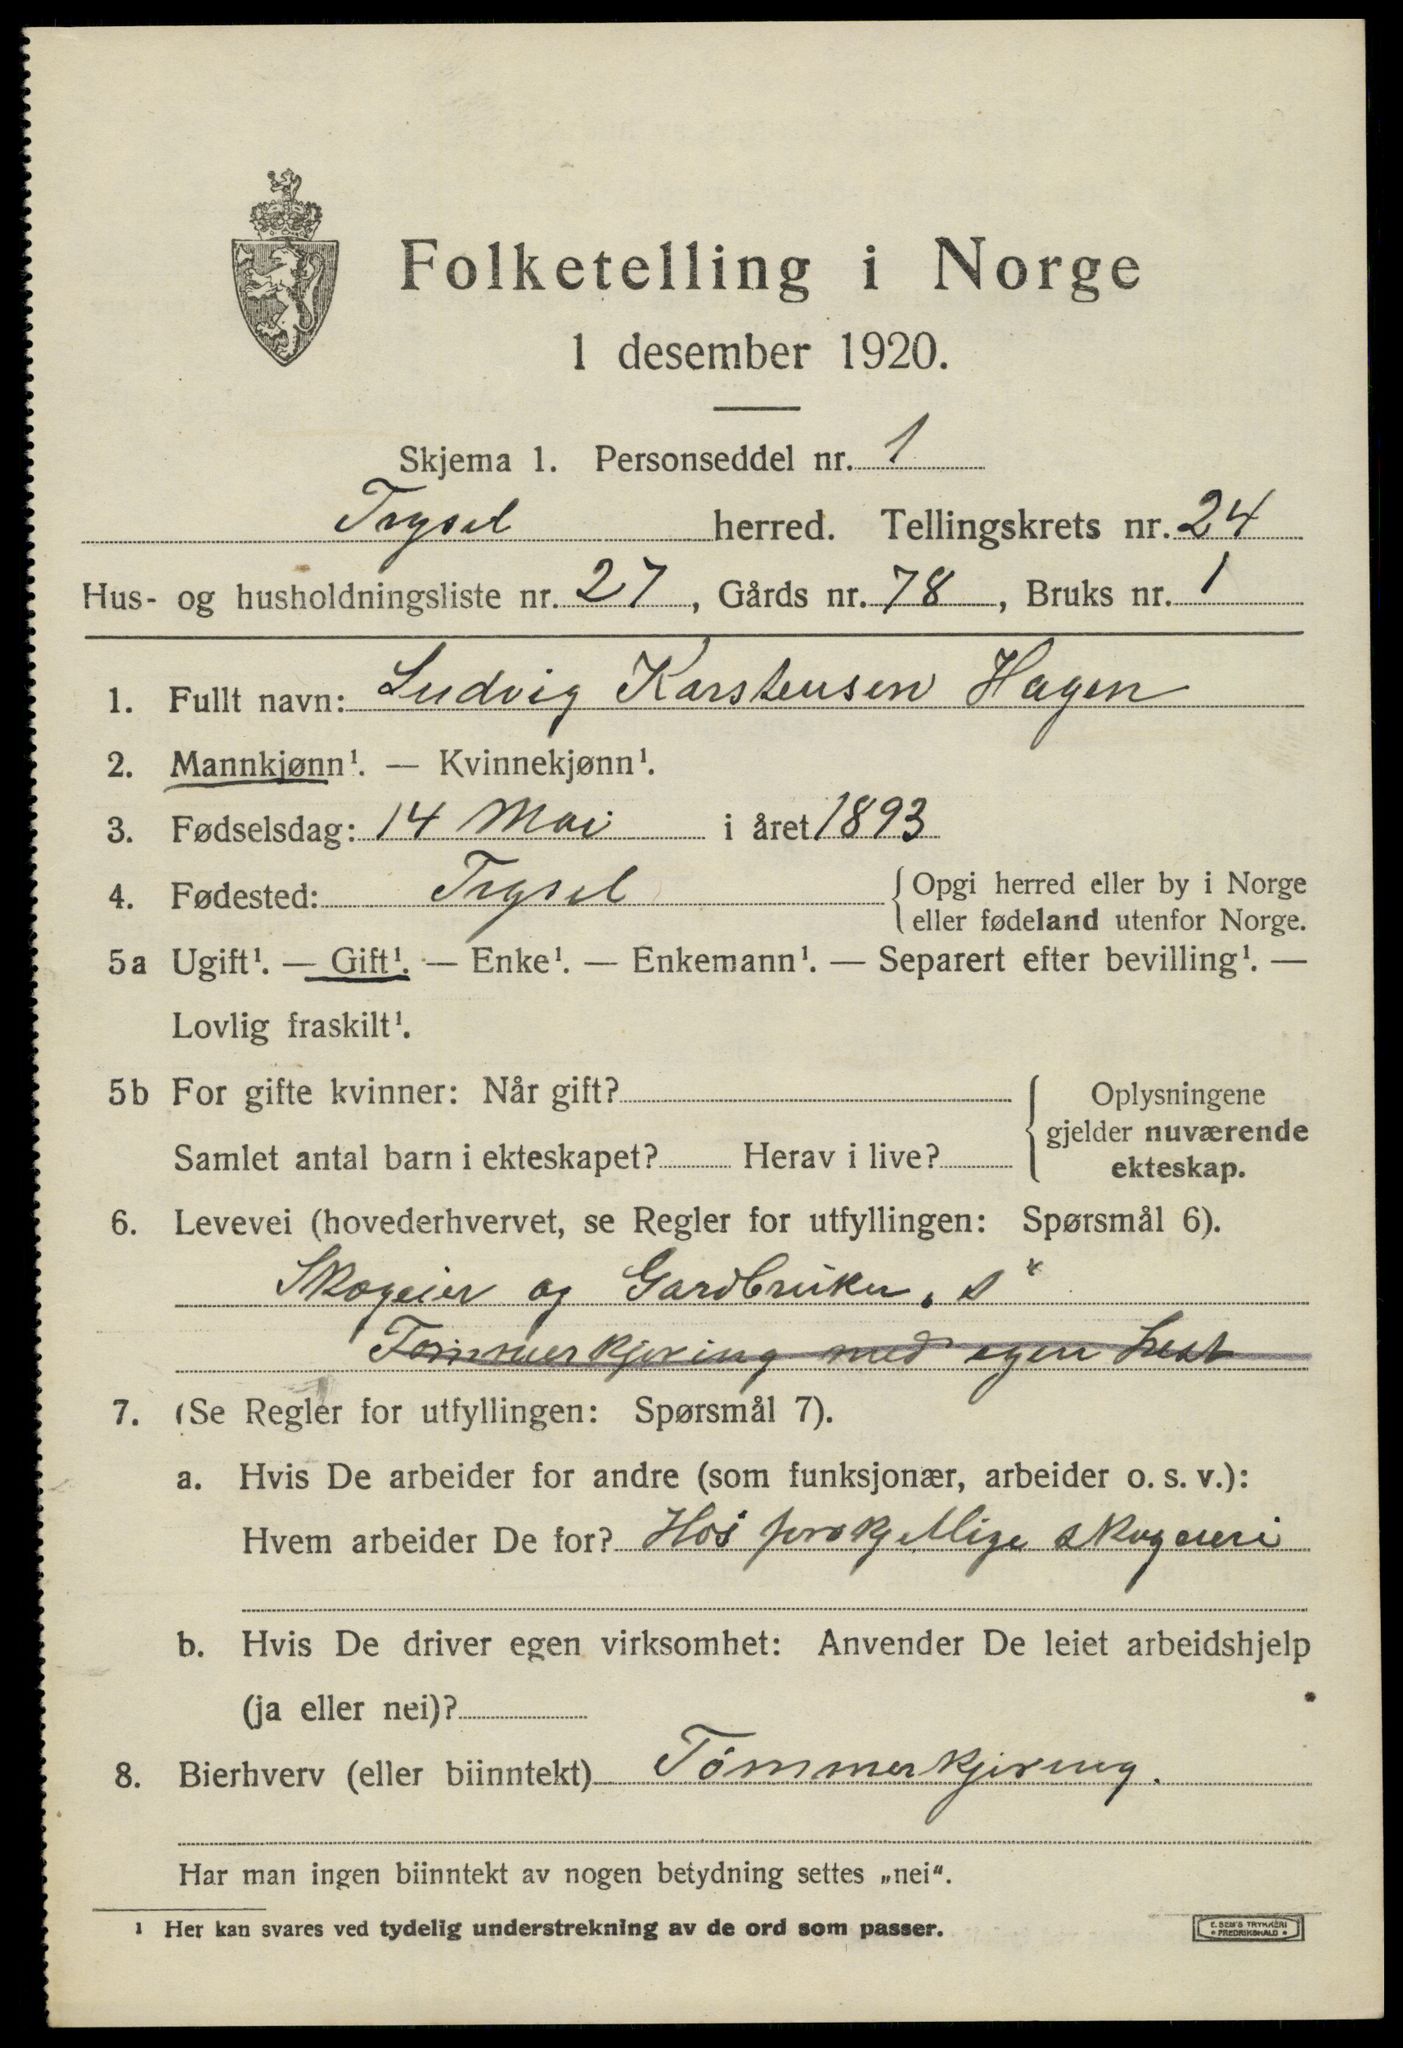 Folketelling i Norge
1 desember 1920.
Skjema 1. Personseddel nr. 1
Trysel herred. Tellingskrets nr. 24
Hus- og husholdningsliste nr. 27, Gårds nr. 78, Bruks nr. 1
1. Fullt navn: Ludvig Karstensen Hagen
2. Mannkjønn¹. — Kvinnekjønn¹.
3. Fødselsdag: 14 Mai i året 1893
4. Fødested: Trysel {Opgi herred eller by i Norge
eller fødeland utenfor Norge.
5a Ugift¹. — Gift¹. — Enke¹. — Enkemann¹. — Separert efter bevilling¹. —
Lovlig fraskilt¹.
5b For gifte kvinner: Når gift? { Oplysningene
gjelder nuværende
Samlet antal barn i ekteskapet? Herav i live? ekteskap.
6. Levevei (hovederhvervet, se Regler for utfyllingen: Spørsmål 6).
Skogeier og Gardbruker. s
Tømmerkjøring med egen hest
7. (Se Regler for utfyllingen: Spørsmål 7).
a. Hvis De arbeider for andre (som funksjonær, arbeider o. s. v.):
Hvem arbeider De for? Hos forskjellige skogeieri
b. Hvis De driver egen virksomhet: Anvender De leiet arbeidshjelp
(ja eller nei)?
8. Bierhverv (eller biinntekt) Tømmerkjøring.
Har man ingen biinntekt av nogen betydning settes „nei“.
¹ Her kan svares ved tydelig understrekning av de ord som passer.
E. SEM'S TRYKKERI
* FREDRIKSHALD *